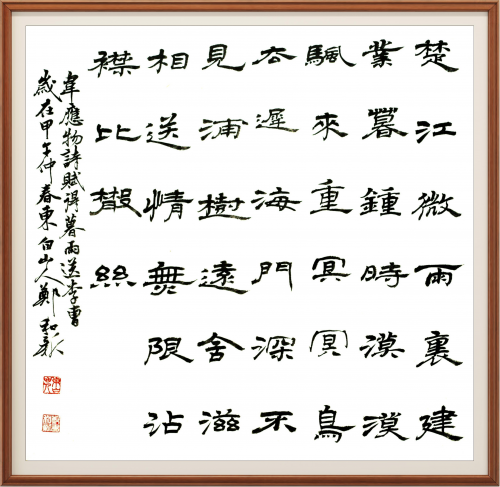 楚江微雨裏建
業暮鍾時漠漠
颿來重冥冥鳥
去遲海門深不
見浦樹遠含滋
相送情無限沾
襟比散絲
韋應物詩賦得暮雨送李曹
歲在甲午仲春東白山人鄭